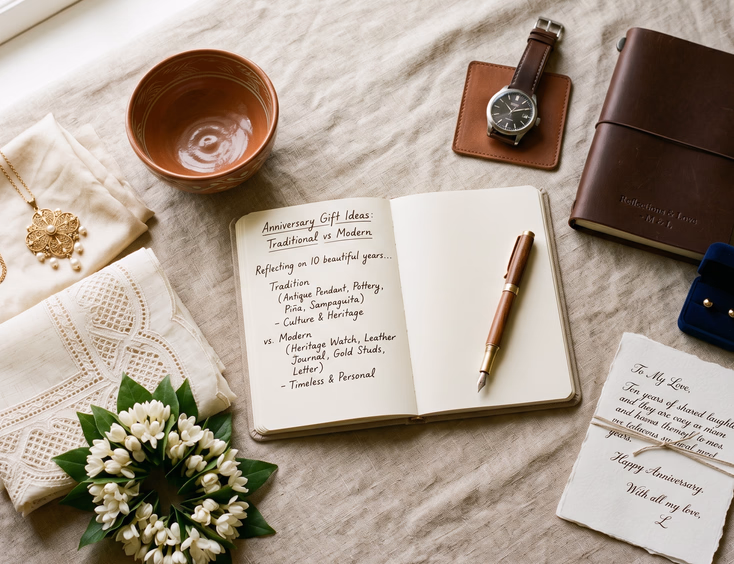 Anniversary Gift Ideas:
Traditional vs Modern
Reflecting on 10 beautiful years...
Tradition
(Antique Pendant, Pottery,
Piña, Sampaguita)
- Culture & Heritage
vs. Modern
(Heritage Watch, Leather
Journal, Gold Studs,
Letter)
- Timeless & Personal
Reflections &
To My Love,
Ten years of shared laught
and they are
and
years.
Happy Anniversary.
With all my love,
L